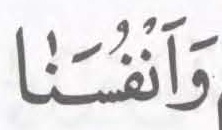 وَاَنْفُسَنَا